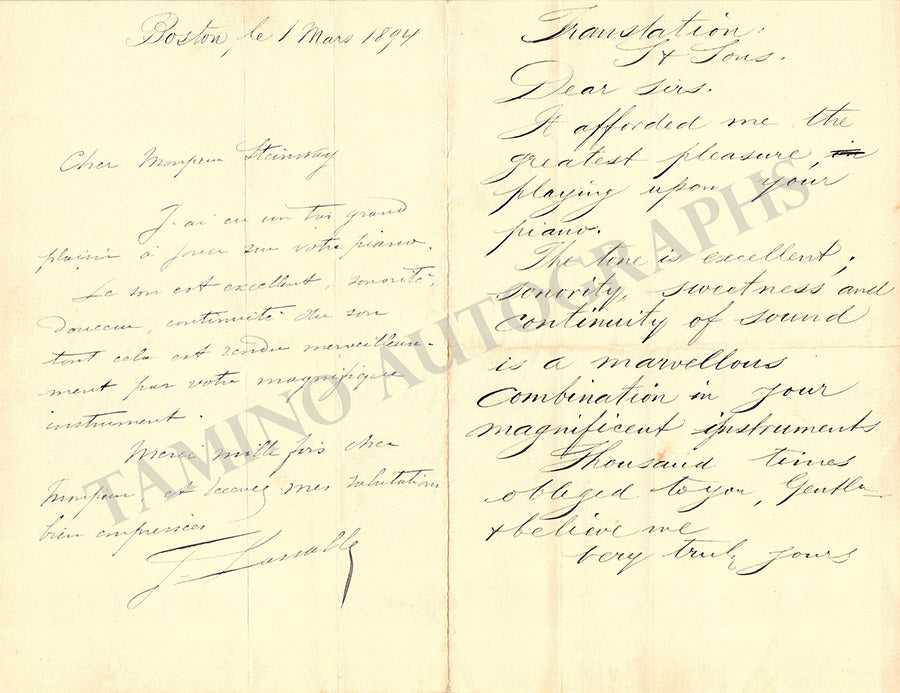 Boston, le 1 Mars 1894
Cher Monsieur Steinway
J'ai eu un très grand
plaisir à jouer sur votre piano.
Le son est excellent, sonorité,
douceur, continuité du son
tout cela est rendu merveilleuse-
ment par votre magnifique
instrument.
Merci mille fois cher
Monsieur et recevez mes salutations
bien empressées
J. Lassalle
Translation.
S & Sons.
Dear Sirs.
It afforded me the
greatest pleasure, in
playing upon your
piano.
The tone is excellent;
sonority, sweetness and
continuity of sound
is a marvellous
combination in your
magnificent instruments
Thousand times
obliged to you, Gentln
& believe me
very truly yours
TAMINO AUTOGRAPHS